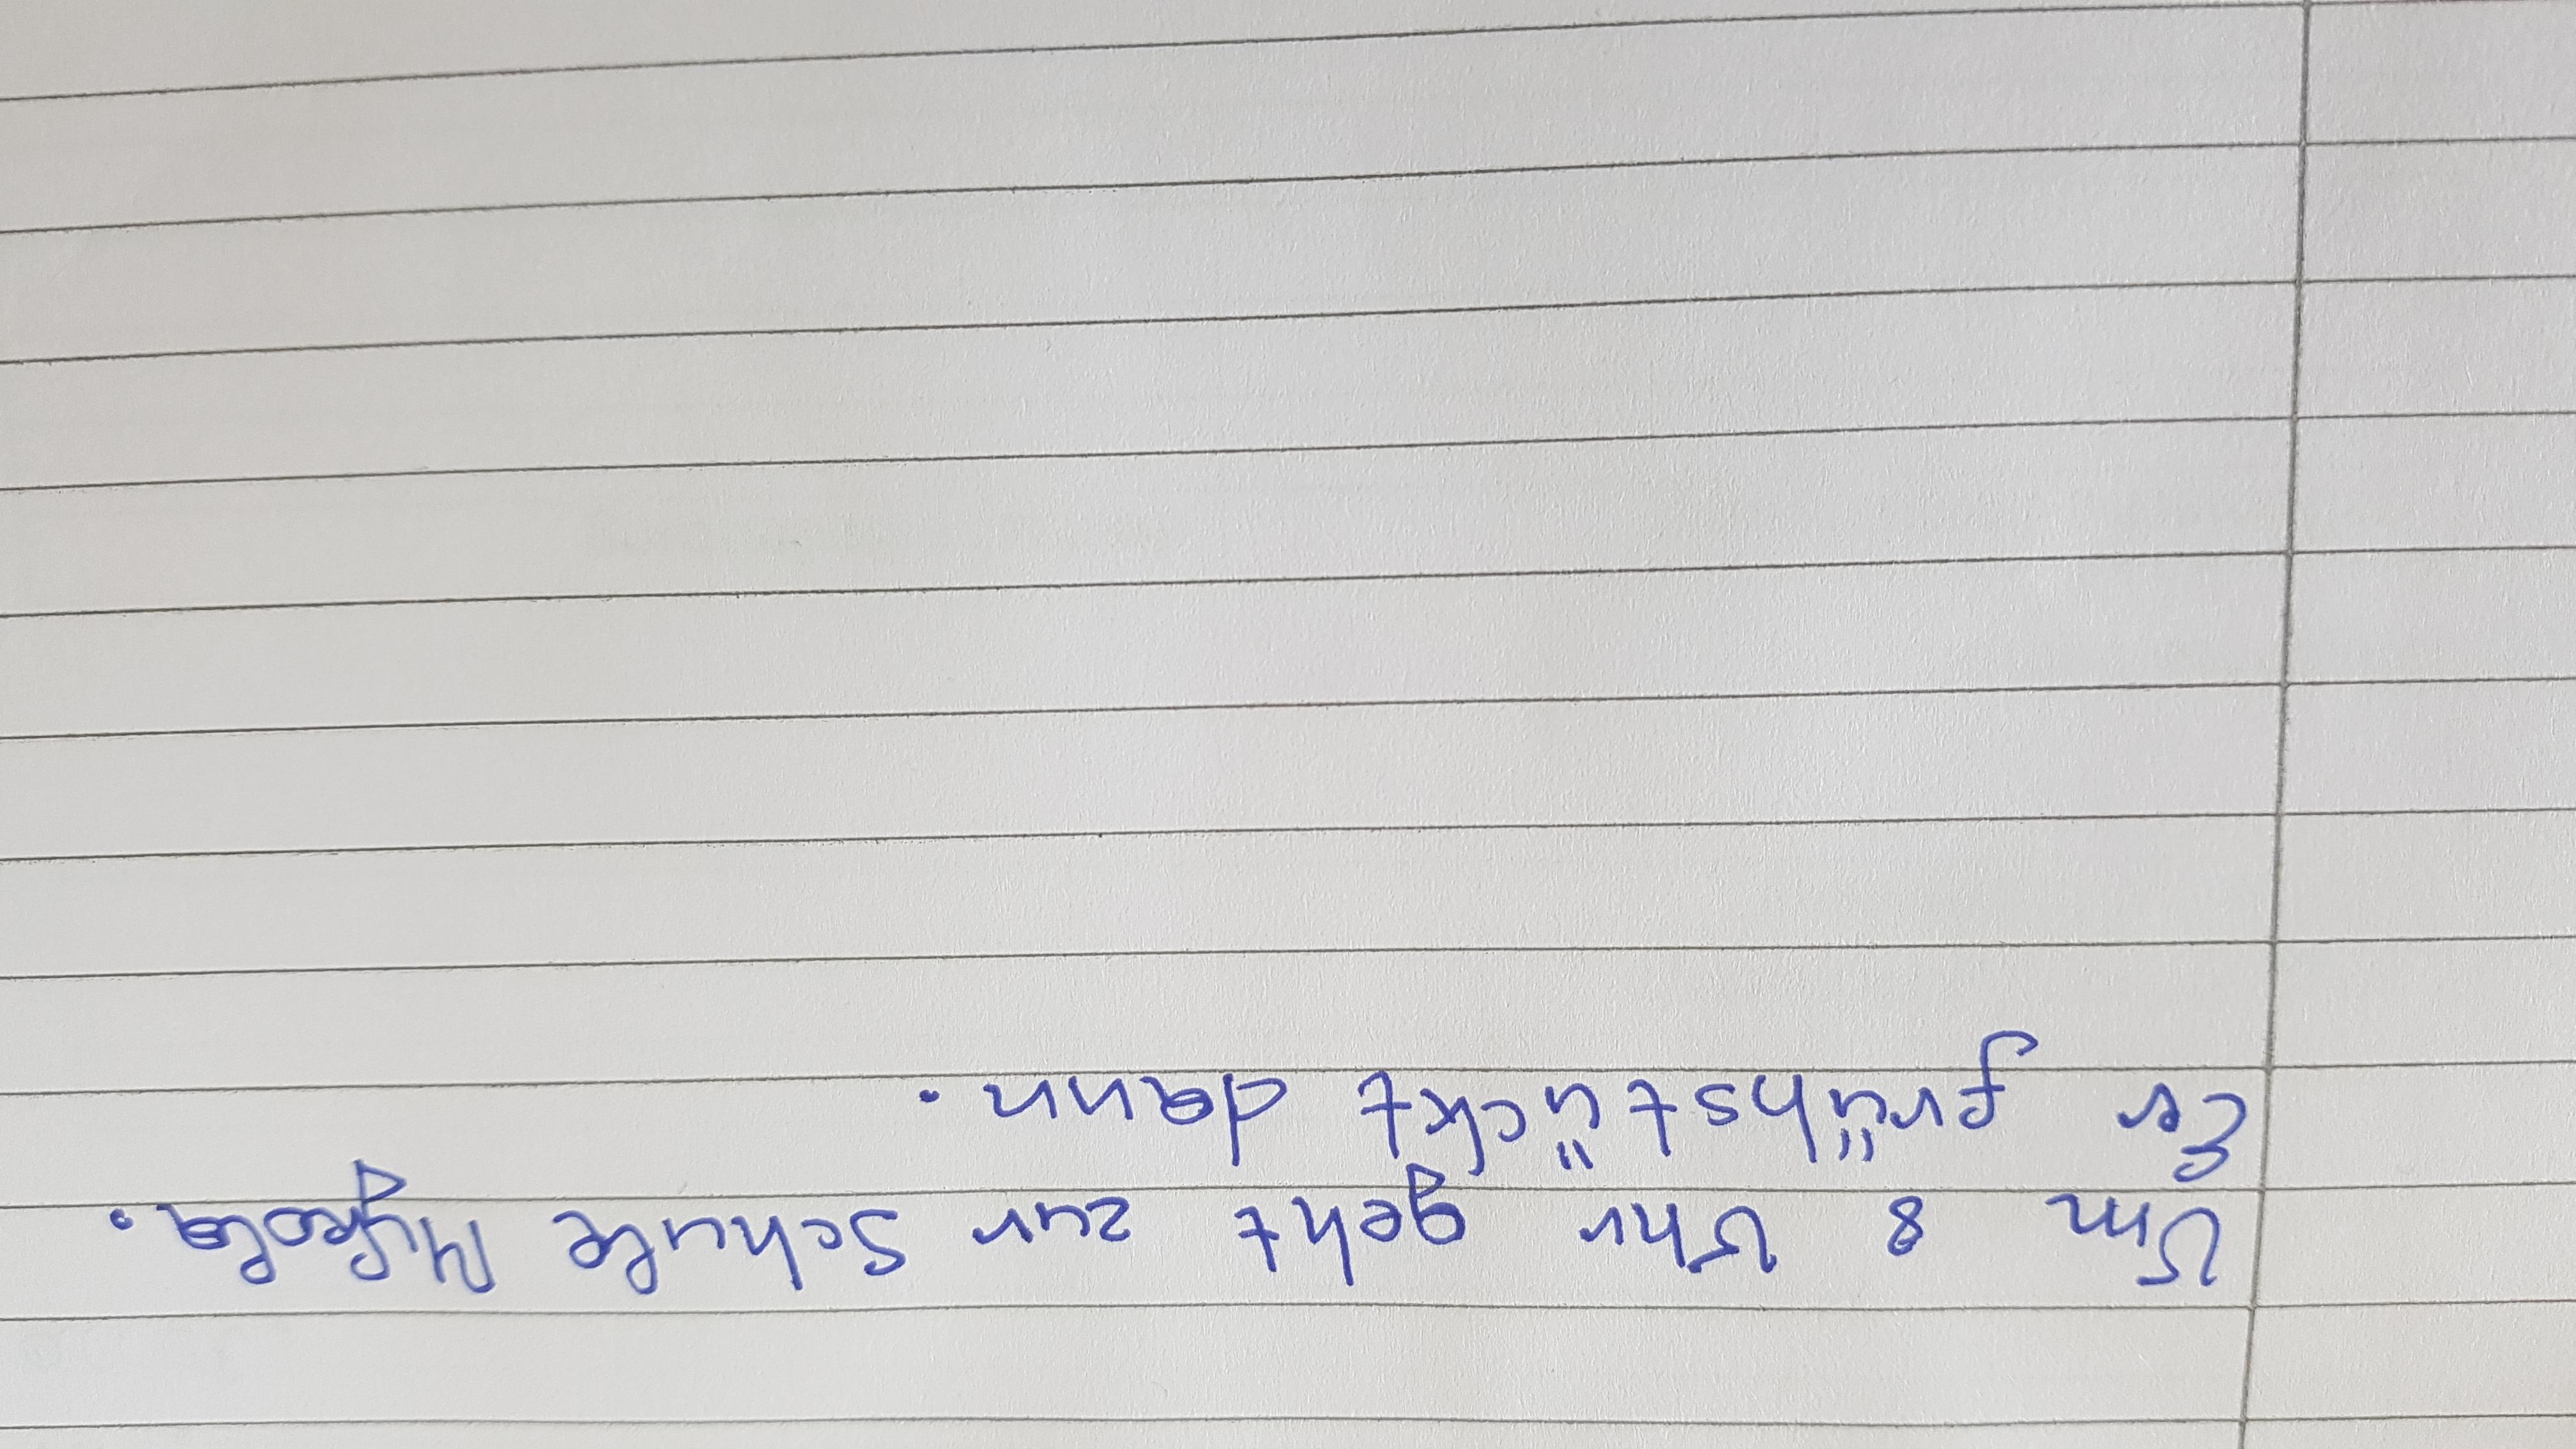 Um 8 Uhr geht zur Schule Mykola.
Er frühstückt dann.